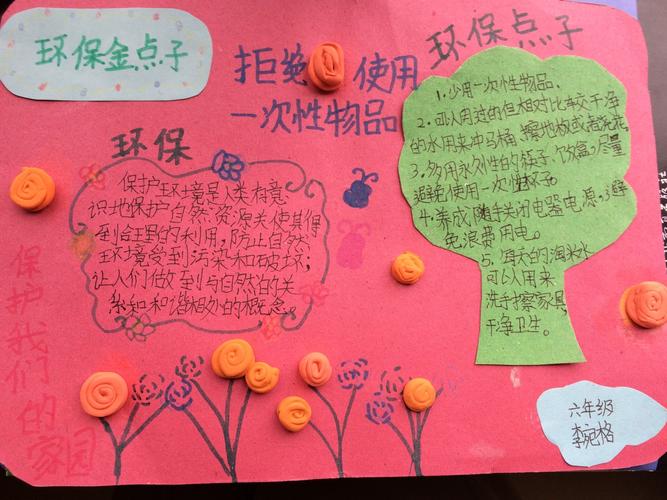 环保金点子
拒绝 使用
一次性物品
环保点子
环保
保护环境是人类有意
识地保护自然资源关使其得
到合理的利用,防止自然
环境受到污染和破坏;
让人们做到与自然的关
系和和谐相处的概念。
1.少用一次性物品、
2.可以用过的但相对比较干净
的水用来冲马桶,擦地板或者浇花。
3.多用永久性的筷子、饭盒,尽量
避免使用一次性杯子。
4.养成随手关闭电器电源,避
免浪费用电。
5.每天的淘米水
可以用来
洗手擦家具,
干净卫生。
保护我们的家园
六年级
李宛格